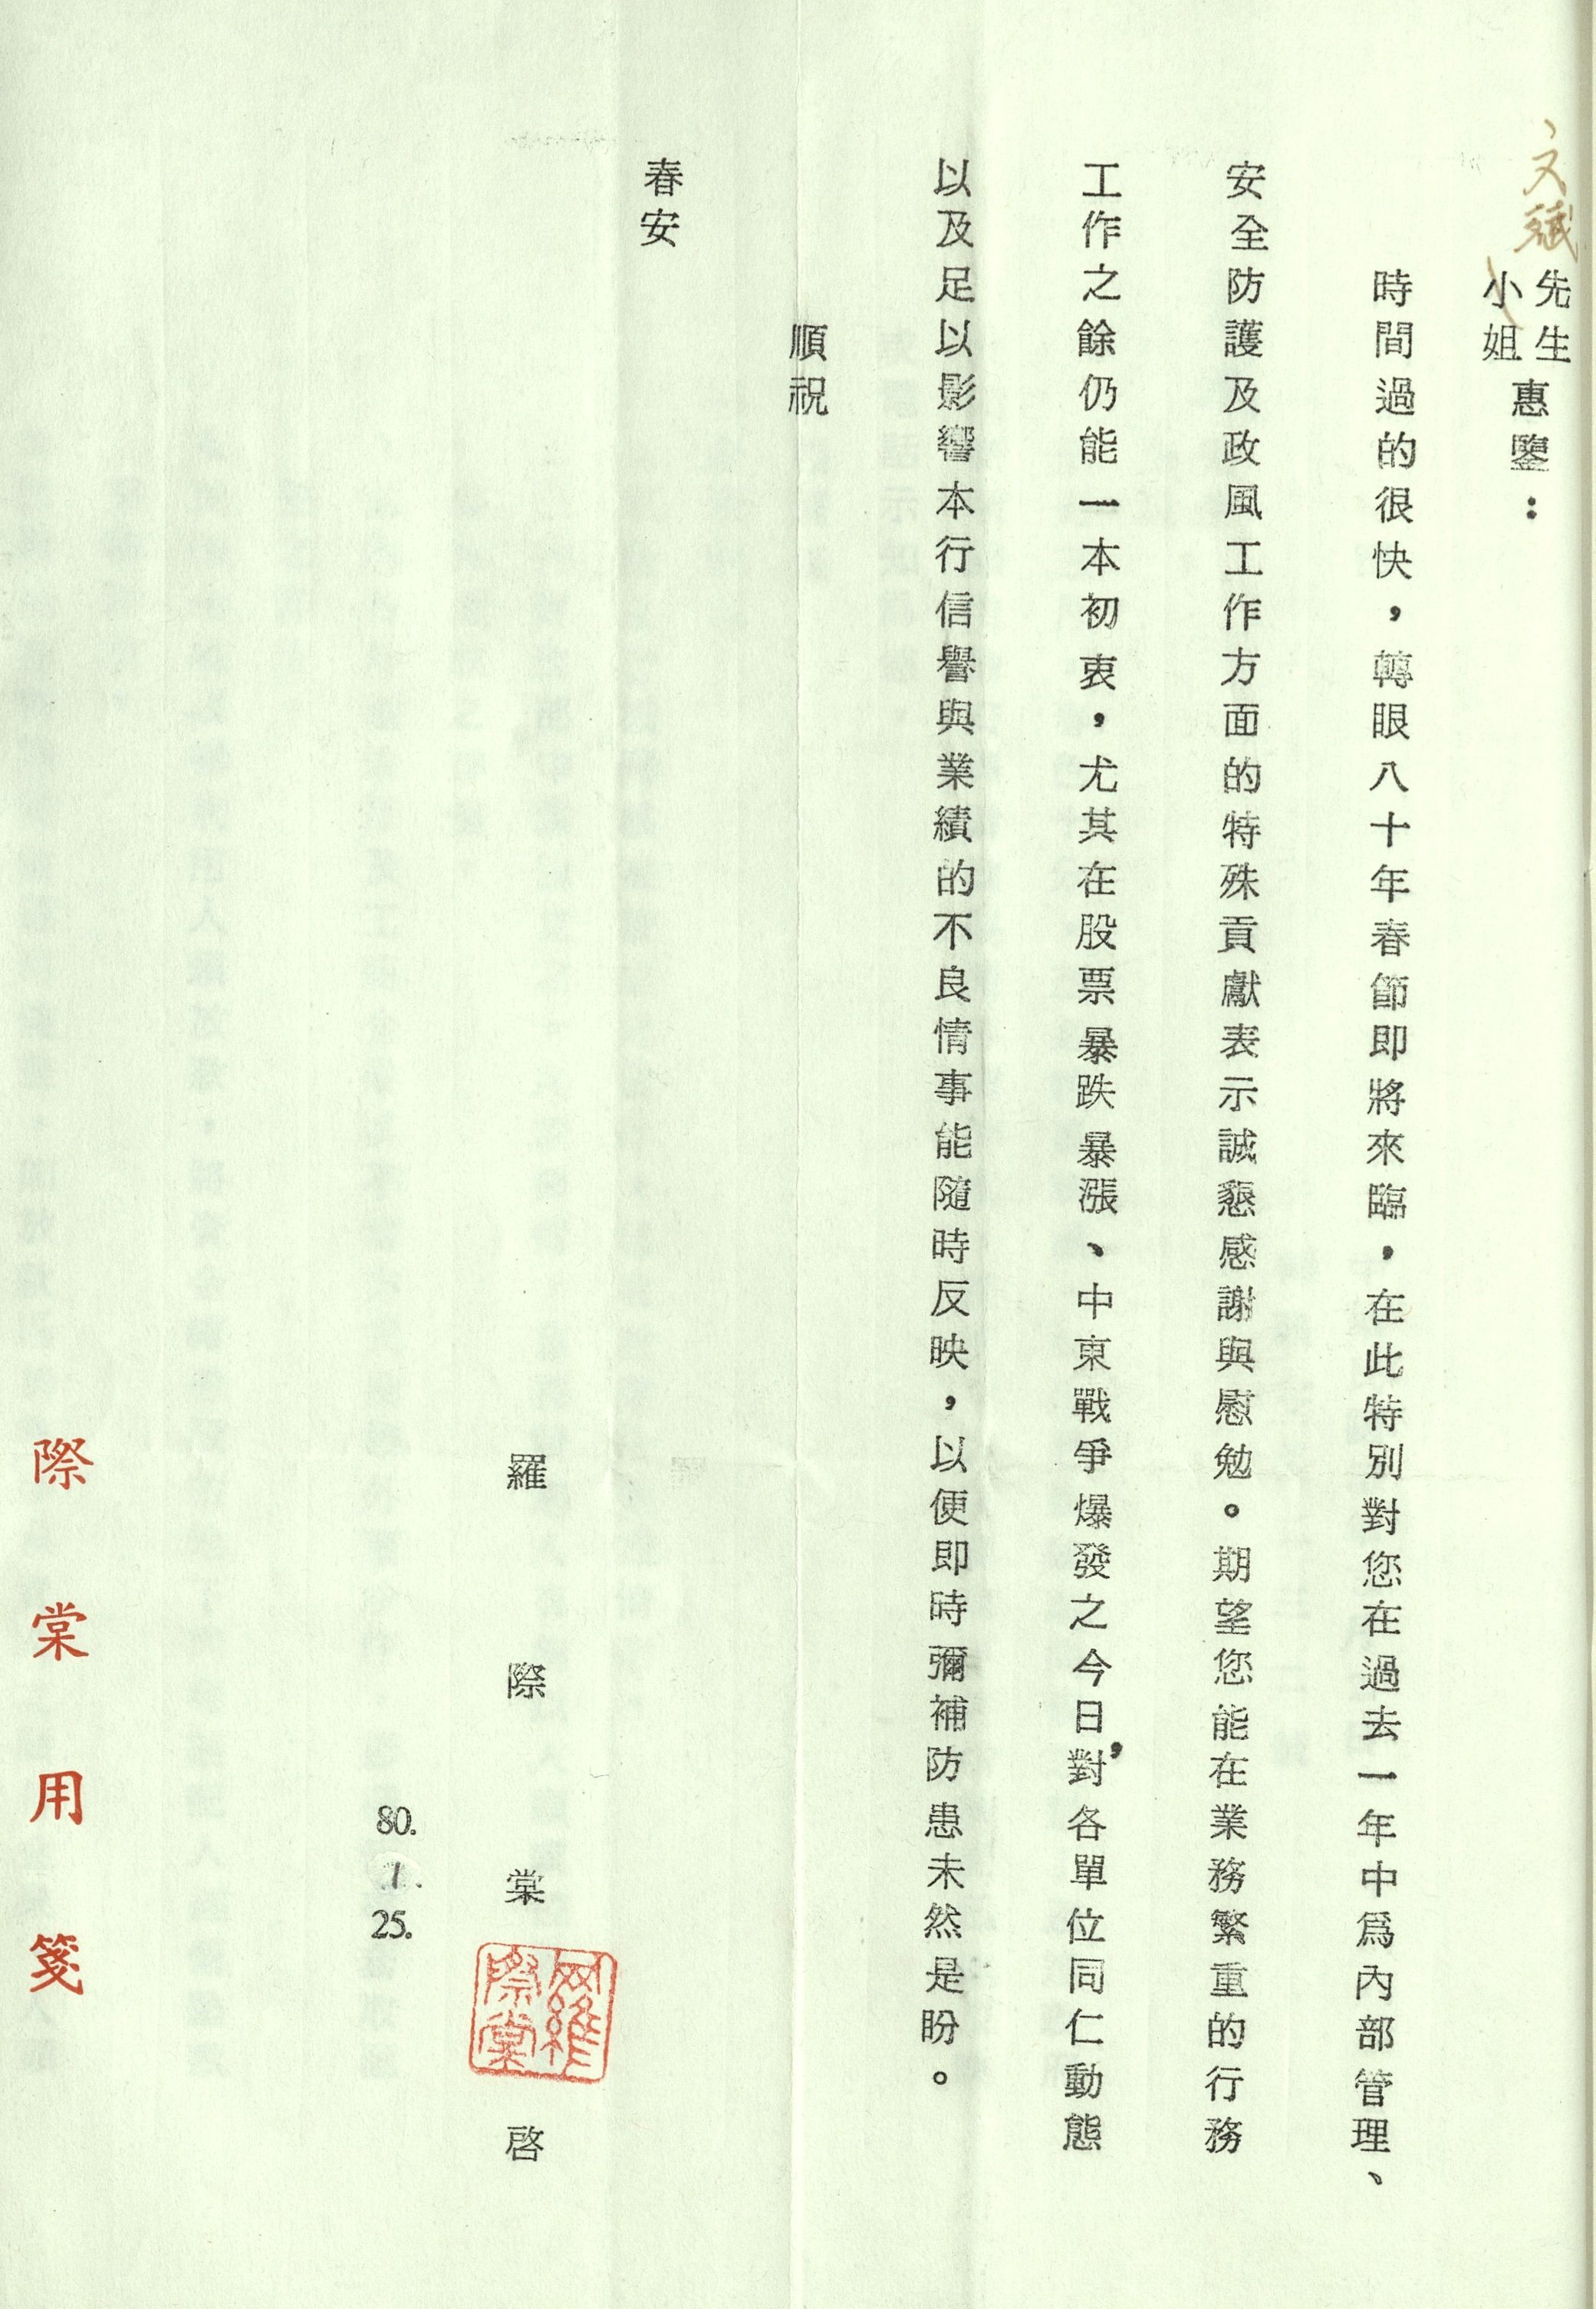 文斌
先生
小姐
惠鑒：
時間過的很快，轉眼八十年春節即將來臨，在此特別對您在過去一年中為內部管理、
安全防護及政風工作方面的特殊貢獻表示誠懇感謝與慰勉。期望您能在業務繁重的行務
工作之餘仍能一本初衷，尤其在股票暴跌暴漲、中東戰爭爆發之今日，對各單位同仁動態
以及足以影響本行信譽與業績的不良情事能隨時反映，以便即時彌補防患未然是盼。
順祝
春安
羅際棠 啓
羅
際棠
80. 1. 25.
際棠用箋